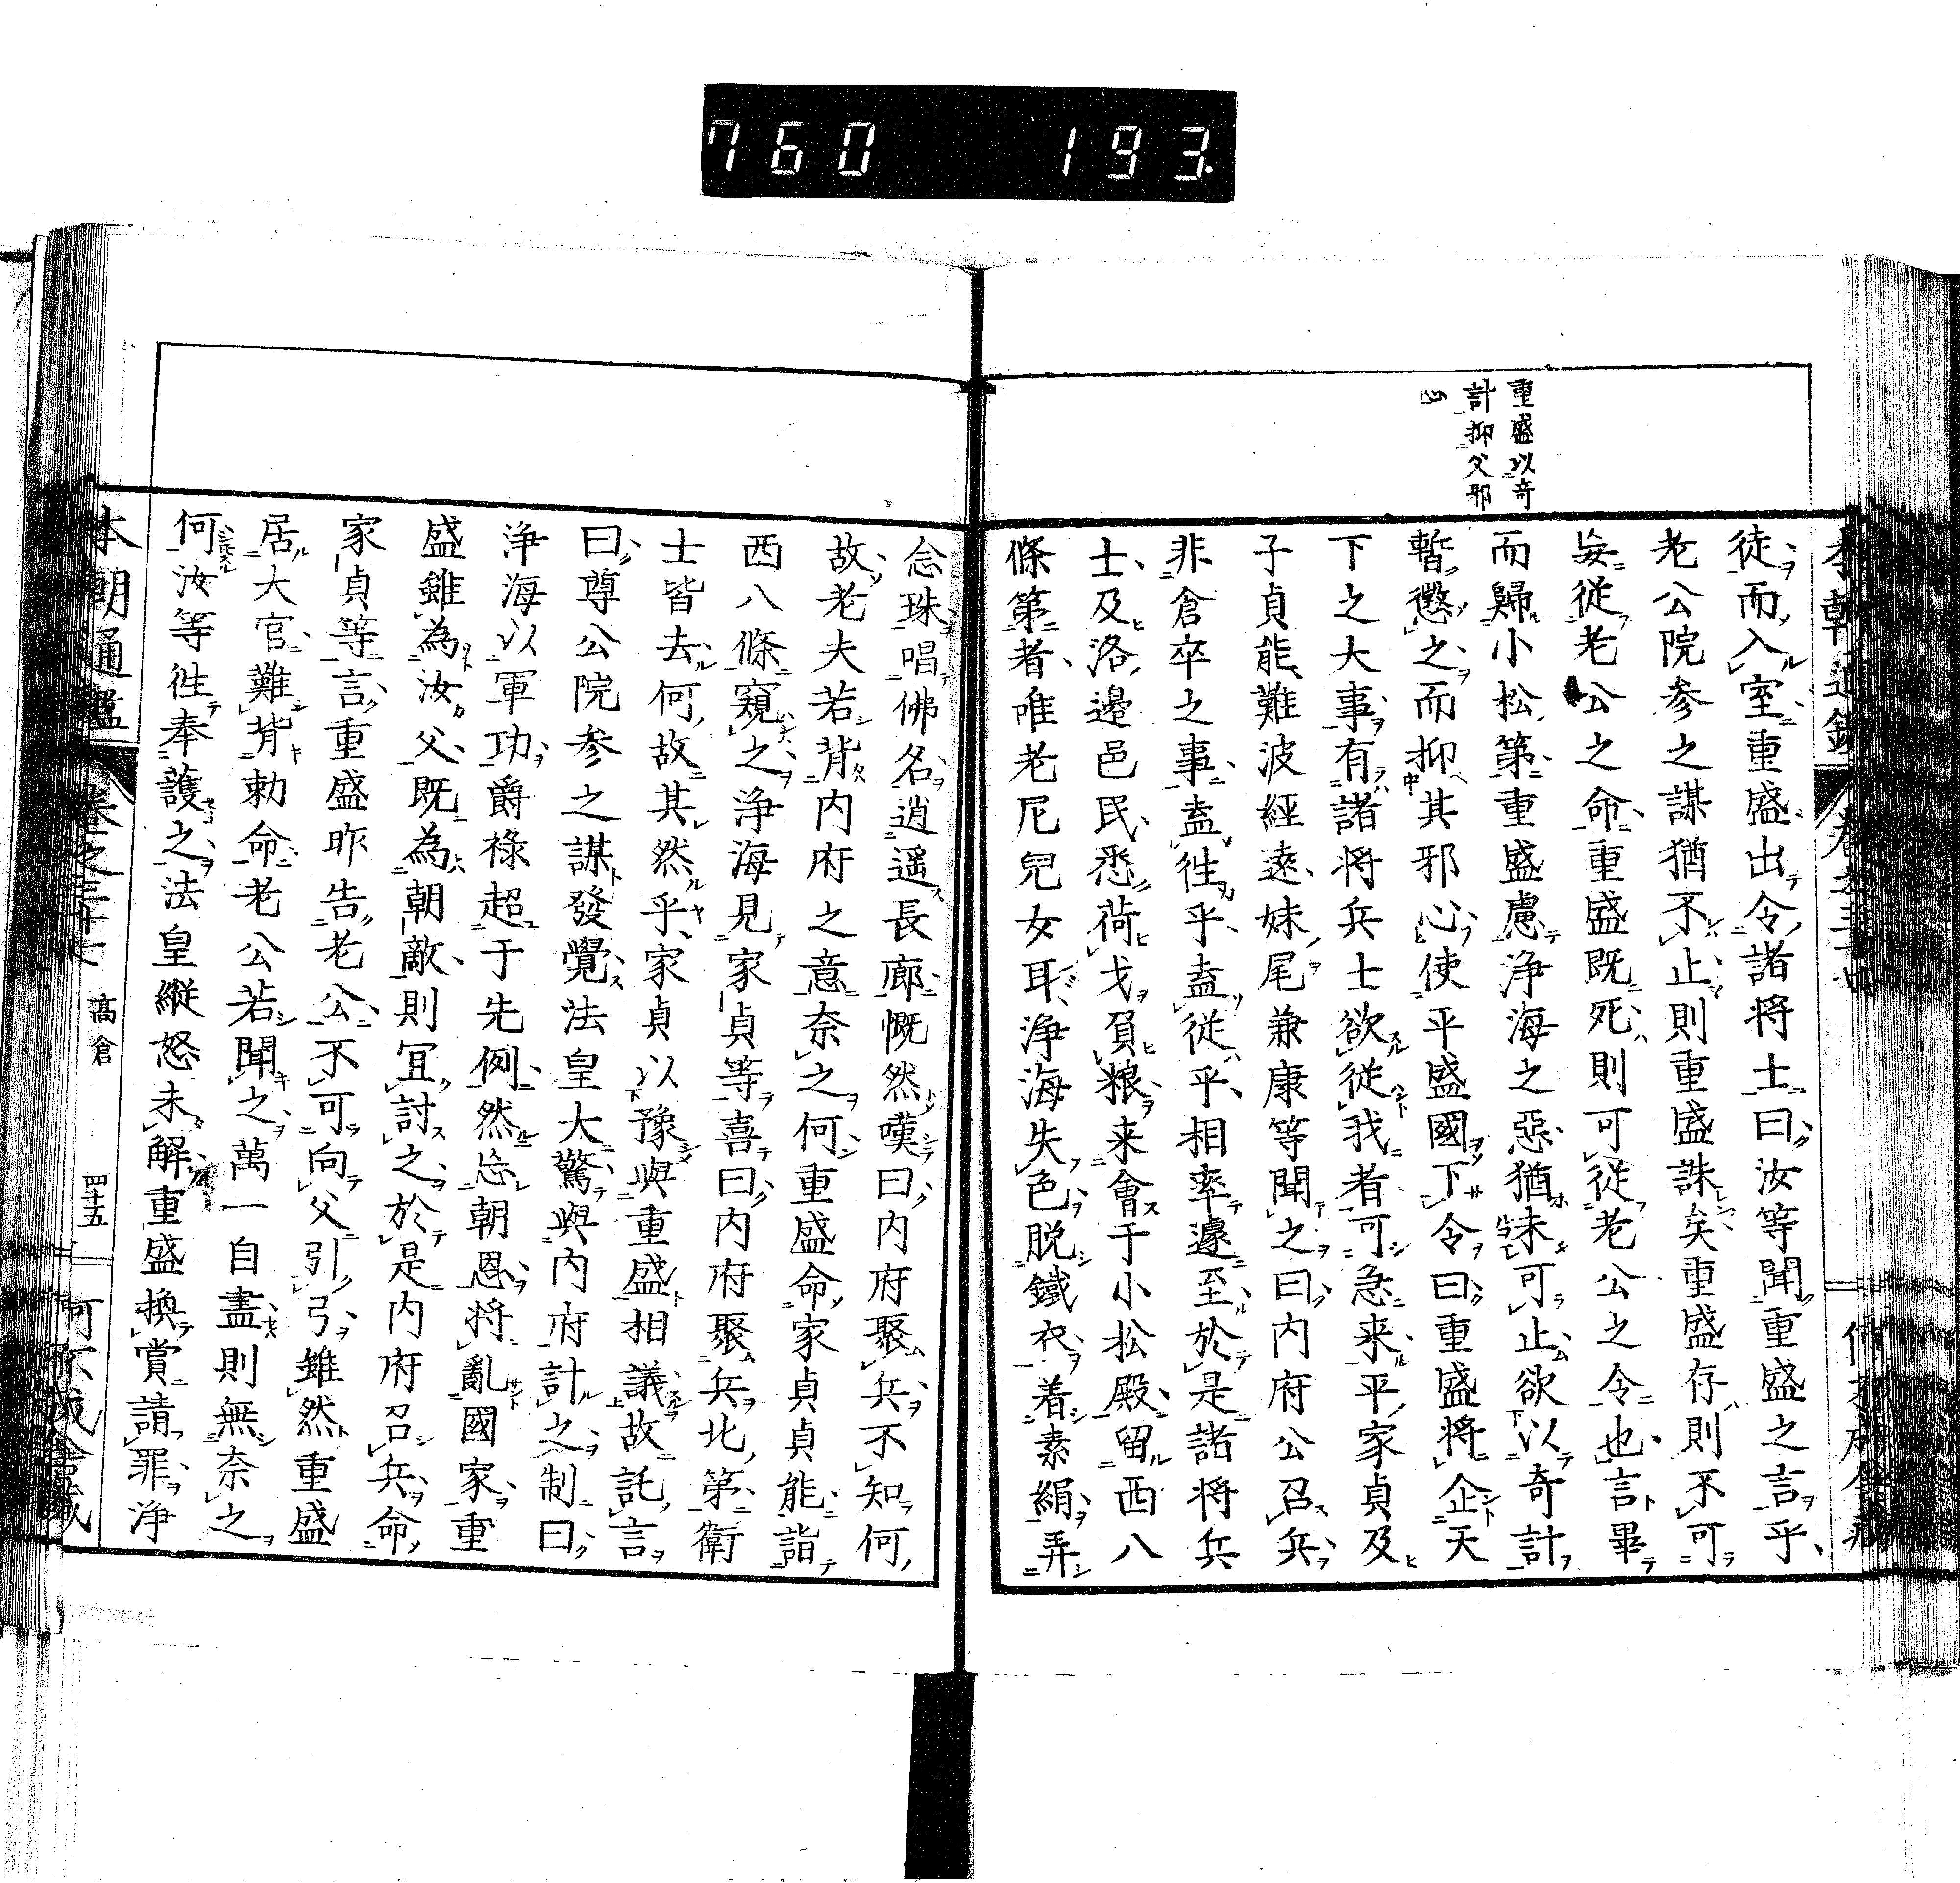 760 193.
重盛以奇
計抑父邪
心
徒而入室重盛出令諸将士曰汝等聞重盛之言乎
老公院参之謀猶不止則重盛誅矣重盛存則不可
妄従老公之命重盛既死則可従老公之令也言畢
而歸小松第重盛慮浄海之惡猶未可止欲以奇計
暫懲之而抑其邪心使平盛國下令曰重盛将企天
下之大事有諸将兵士欲従我者可急来平家貞及
子貞能難波經遠妹尾兼康等聞之曰内府公召兵
非倉卒之事盍徃乎盍従乎相率遽至於是諸将兵
士及洛邊邑民悉荷戈負粮来會于小松殿留西八
條第者唯老尼兒女耳浄海失色脱鐵衣着素絹弄
念珠唱佛名逍遥長廊慨然嘆曰内府聚兵不知何
故老夫若背内府之意奈之何重盛命家貞貞能詣
西八條窺之浄海見家貞等喜曰内府聚兵北第衛
士皆去何故其然乎家貞以豫與重盛相議故託言
曰尊公院参之謀發覺法皇大驚與内府計之制曰
浄海以軍功爵禄超于先例然忘朝恩将亂國家重
盛雖為汝父既為朝敵則宜討之於是内府召兵命
家貞等言重盛昨告老公不可向父引弓雖然重盛
居大官難背勅命老公若聞之萬一自盡則無奈之
何汝等徃奉護之法皇縦怒未解重盛換賞請罪浄
本朝通鑑 巻之三十七 高倉 四十五